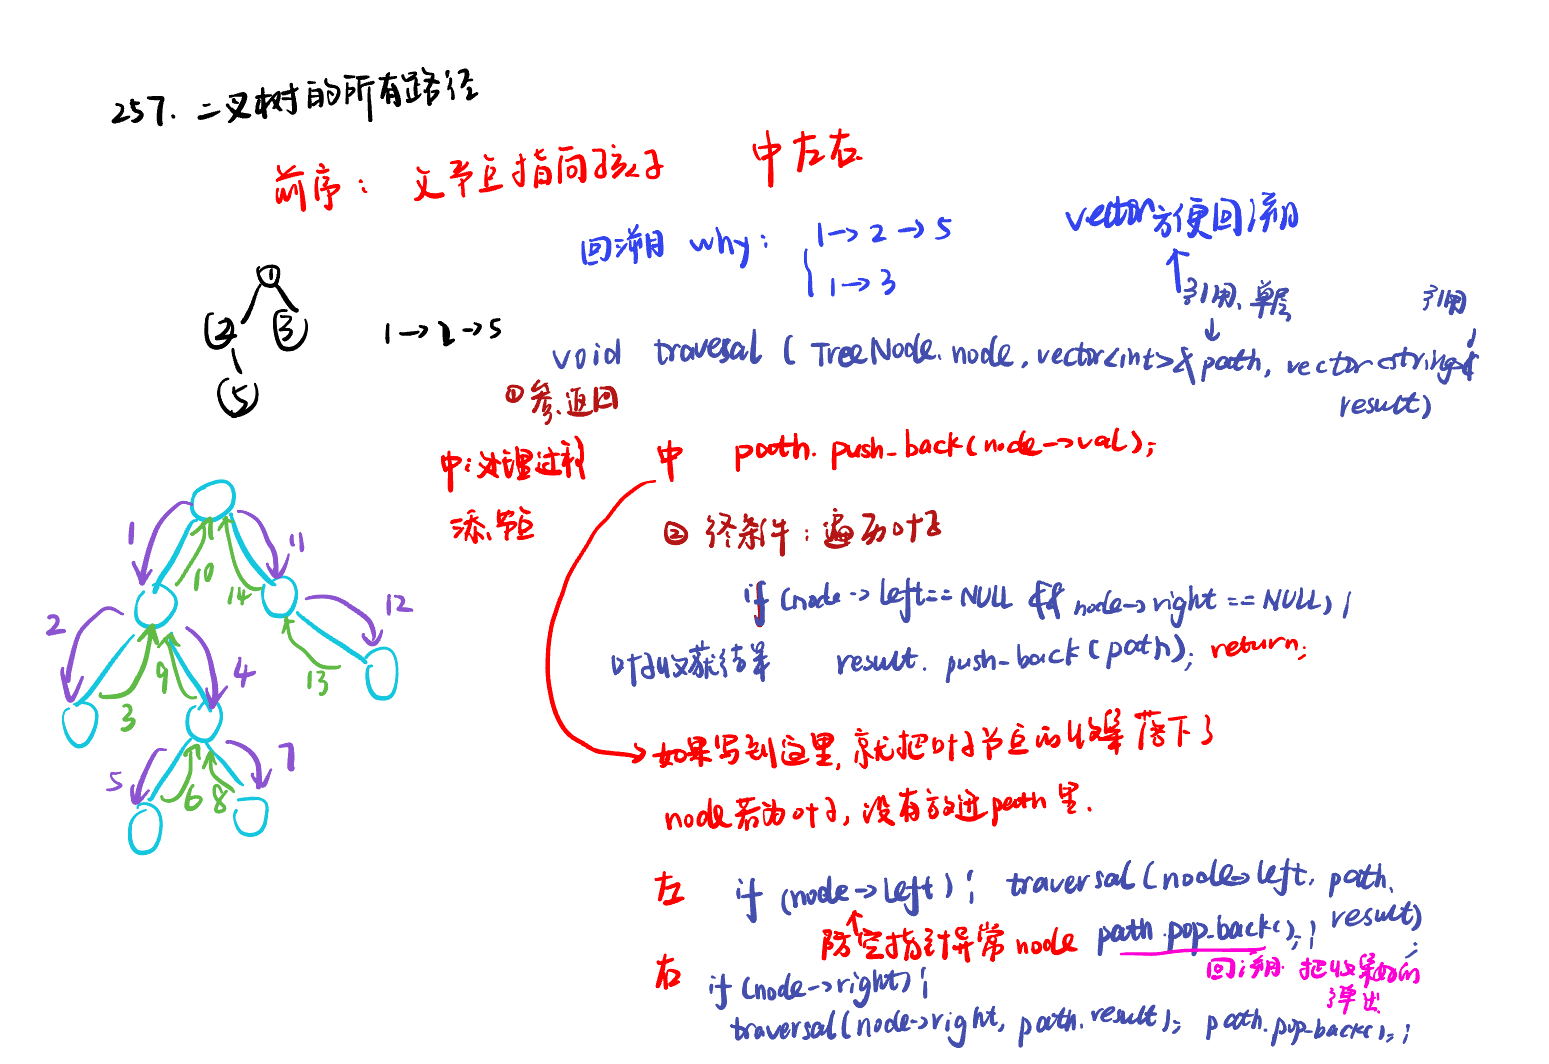 257. 二叉树的所有路径
前序: 父节点指向孩子 中左右
回溯 why: 1→2→5
1→3
vector方便回溯
引用、单层
引用
1
2 3
5
1→2→5
void travesal ( TreeNode. node, vector<int>& path, vector<string>&
result)
①参、返回
中:处理过程
添、节点
中 path. push_back(node->val);
② 终条件: 遍历叶子
if (node -> left == NULL && node->right == NULL) {
叶子收获结果 result. push-back(path); return;
如果写到这里, 就把叶子节点的收集落下了
node若为叶子, 没有放进path里.
左 if (node->left) { traversal(node->left, path,
result)
防空指针异常 node path.pop_back(); } ;
回溯 把收集好的
弹出
右 if (node->right) {
traversal(node->right, path. result); path.pop-back(); ;
1 10 11 14 12
2 3 9 4 13
5 6 8 7